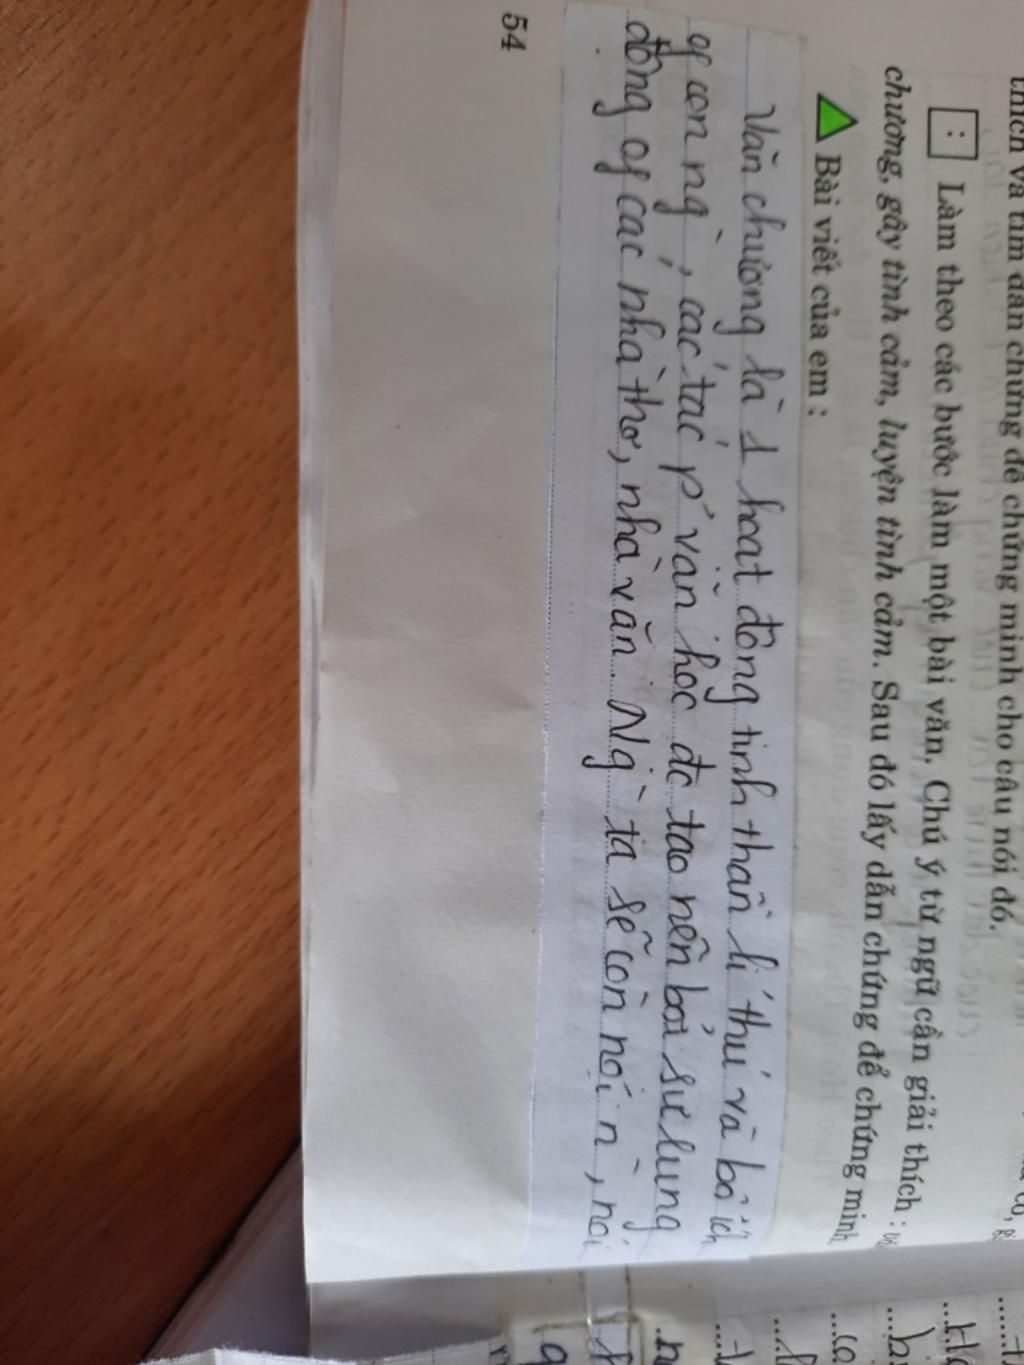 thích và tìm dẫn chứng để chứng minh cho câu nói đó.
: Làm theo các bước làm một bài văn. Chú ý từ ngữ cần giải thích :
chương, gây tình cảm, luyện tình cảm. Sau đó lấy dẫn chứng để chứng minh
Bài viết của em :
Văn chương là 1 hoạt động tinh thần lí thú và bổ ích
of con ng`, các tác p' văn học đc tạo nên bởi sự lung
động of các nhà thơ, nhà văn. Ng` ta sẽ còn nói n~, nói
54